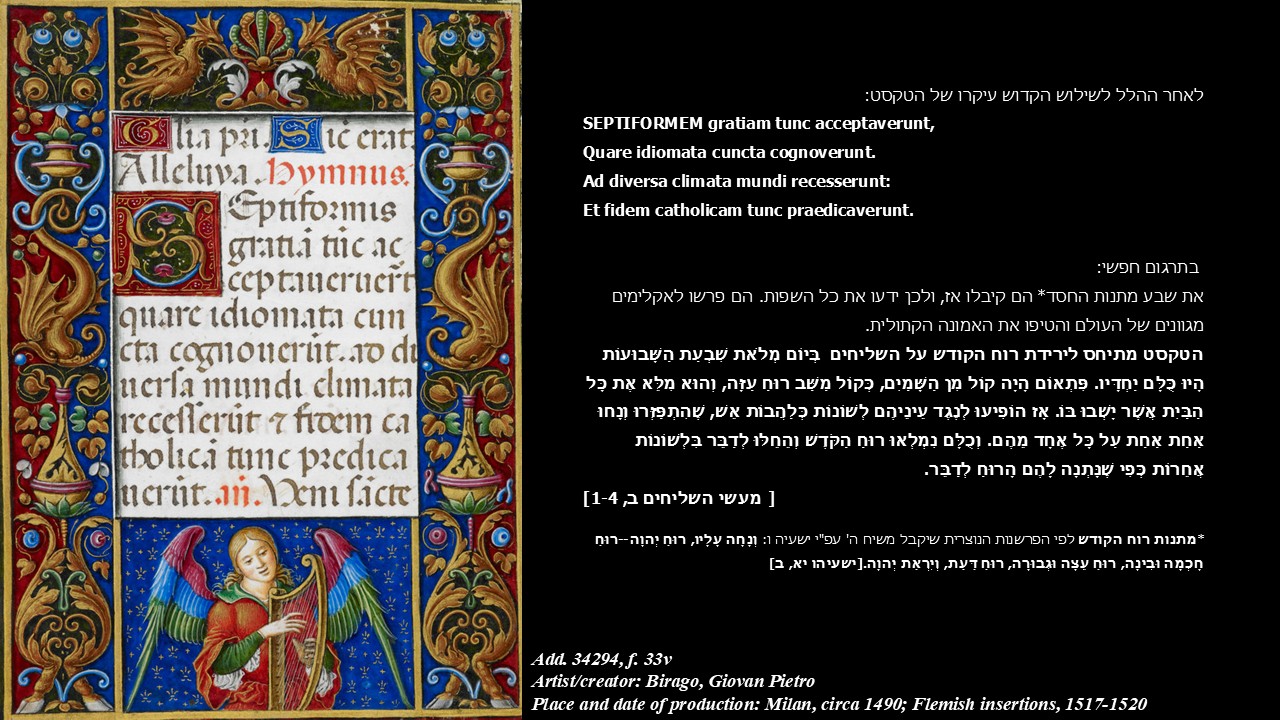 Glia pri. Sic erat
Alleluya. Hymnus.
SEptiformis
gratiā tūc ac
ceptaueruerūt
quare idiomata cun
cta cognouerūt. ad di
uersa mundi climata
recesserūt & fidem ca
tholicā tunc predica
uerūt. añ. Veni sācte
לאחר ההלל לשילוש הקדוש עיקרו של הטקסט:
SEPTIFORMEM gratiam tunc acceptaverunt,
Quare idiomata cuncta cognoverunt.
Ad diversa climata mundi recesserunt:
Et fidem catholicam tunc praedicaverunt.
בתרגום חפשי:
את שבע מתנות החסד* הם קיבלו אז, ולכך ידעו את כל השפות. הם פרשו לאקלימים
מגוונים של העולם והטיפו את האמונה הקתולית.
הטקסט מתיחס לירידת רוח הקודש על השליחים בְּיוֹם מְלֹאת שִׁבְעַת הַשָּׁבוּעוֹת
הָיוּ כֻּלָּם יַחְדָּיו. פִּתְאוֹם הָיָה קוֹל מִן הַשָּׁמַיִם, כְּקוֹל מַשַּׁב רוּחַ עַזָּה, וְהוּא מִלֵּא אֶת כָּל
הַבַּיִת אֲשֶׁר יָשְׁבוּ בּוֹ. אָז הוֹפִיעוּ לְנֶגֶד עֵינֵיהֶם לְשׁוֹנוֹת כְּלֶהָבוֹת אֵשׁ, שֶׁהִתְפַּזְּרוּ וְנָחוּ
אַחַת אַחַת עַל כָּל אֶחָד מֵהֶם. וְכֻלָּם נִמְלְאוּ רוּחַ הַקֹּדֶשׁ וְהֵחֵלּוּ לְדַבֵּר בִּלְשׁוֹנוֹת
אֲחֵרוֹת כְּפִי שֶׁנָּתְנָה לָהֶם הָרוּחַ לְדַבֵּר.
[ מעשי השליחים ב, 1-4]
*מתנות רוח הקודש לפי הפרשנות הנוצרית שיקבל משיח ה' עפ"י ישעיה ו: וְנָחָה עָלָיו, רוּחַ יְהוָה--רוּחַ
חָכְמָה וּבִינָה, רוּחַ עֵצָה וּגְבוּרָה, רוּחַ דַּעַת, וְיִרְאַת יְהוָה.[ישעיהו יא, ב]
Add. 34294, f. 33v
Artist/creator: Birago, Giovan Pietro
Place and date of production: Milan, circa 1490; Flemish insertions, 1517-1520